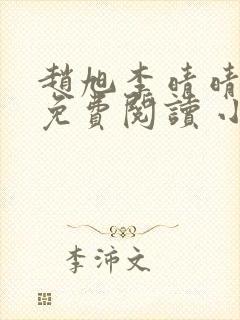 趙旭李晴晴
免費閱讀小
李沛文